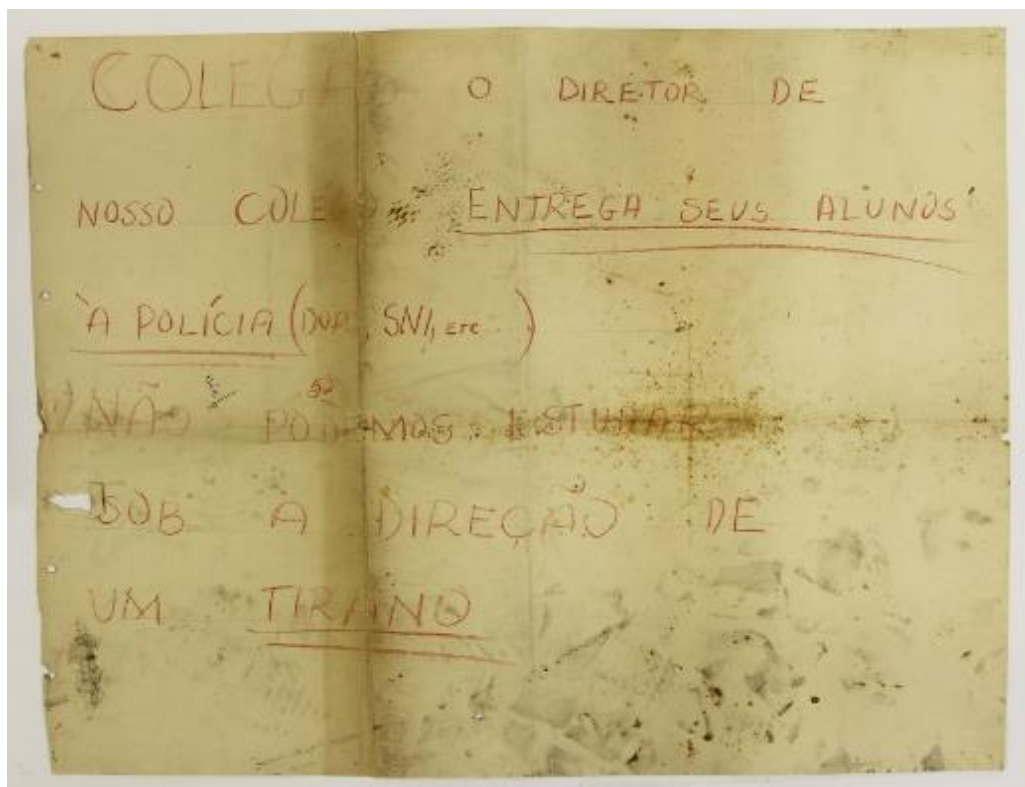 COLEGA O DIRETOR DE
NOSSO COLÉGIO ENTREGA SEUS ALUNOS
À POLÍCIA (DOPS, SNI, ETC)
NÃO PODEMOS ESTUDAR
SOB A DIREÇÃO DE
UM TIRANO